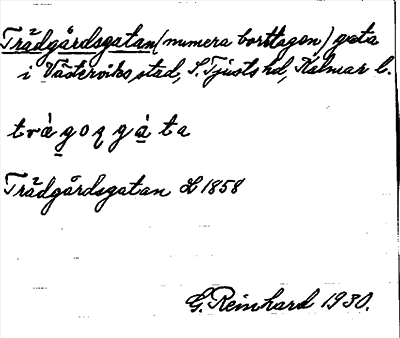 Trädgårdsgatan (numera borttagen) gata
i Västerviks stad, S. Tjusts hd, Kalmar l.
tvàgoqgàta
Trädgårdsgatan L 1858
G. Reinhard 1930.